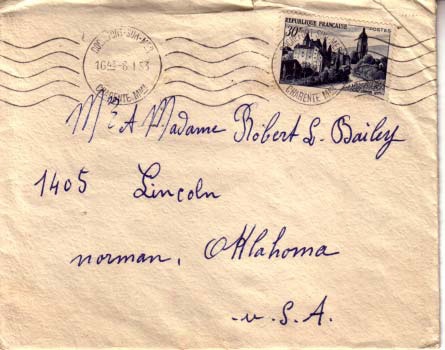 16 45 - 8 1 53
CHARENTE MME
RÉPUBLIQUE FRANÇAISE
POSTES
30F
CHARENTE MME
Mr & Madame Robert L. Bailey
1405 Lincoln
norman, Oklahoma
U.S.A.